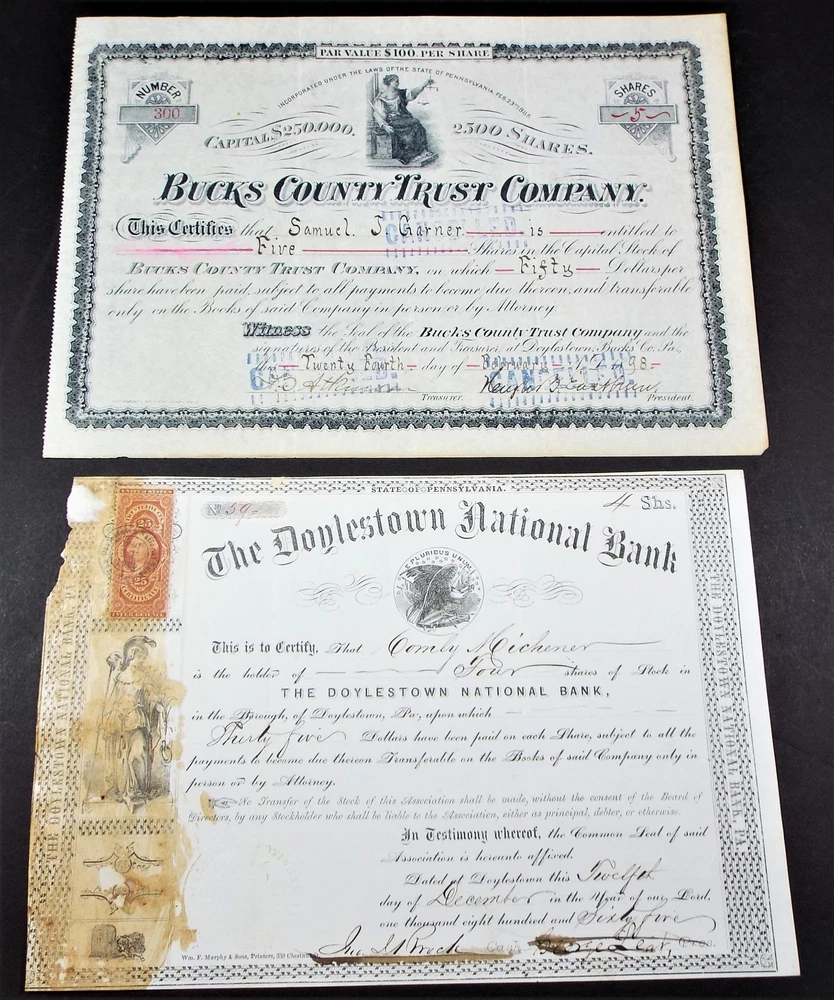 PAR VALUE $100. PER SHARE
INCORPORATED UNDER THE LAWS OF THE STATE OF PENNSYLVANIA, FEB.
NUMBER
300
SHARES
5
CAPITAL $250.000. 2500 SHARES.
BUCKS COUNTY TRUST COMPANY.
This Certifies that Samuel. J. Garner is entitled to
Five Shares in the Capital Stock of
BUCKS COUNTY TRUST COMPANY, on which Fifty Dollars per
share have been paid, subject to all payments to become due thereon, and transferable
only on the Books of said Company in person or by Attorney.
Witness the Seal of the Bucks County Trust Company and the
signatures of the President and Treasurer, at Doylestown, Bucks Co. Pa,
this Twenty Fourth day of February
CANCELLED
Treasurer. President.
STATE OF PENNSYLVANIA.
No 59
4 Shs.
25
25
CERTIFICATE
The Doylestown National Bank
E PLURIBUS UNUM
This is to Certify, That Comly Michener
is the holder of Four shares of Stock in
THE DOYLESTOWN NATIONAL BANK,
in the Borough, of Doylestown, Pa, upon which
Thirty five Dollars have been paid on each Share, subject to all the
payments to become due thereon Transferable on the Books of said Company only in
person or by Attorney.
No Transfer of the Stock of this Association shall be made, without the consent of the Board of
Directors, by any Stockholder who shall be liable to the Association, either as principal, debtor, or otherwise.
In Testimony whereof, the Common Seal of said
Association is hereunto affixed.
Dated at Doylestown this Twelfth
day of December in the Year of our Lord,
one thousand eight hundred and Sixty five
George Lear, Pres.
Wm. F. Murphy & Sons, Printers, 339
THE DOYLESTOWN NATIONAL BANK, PA
THE DOYLESTOWN NATIONAL BANK, PA